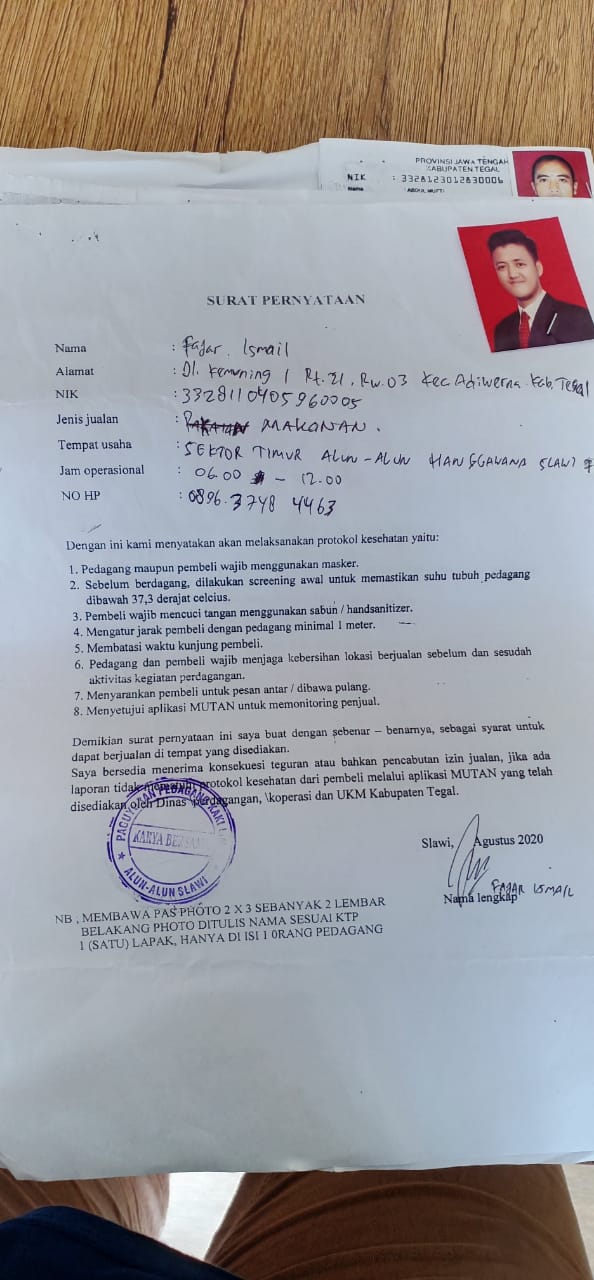 PROVINSI JAWA TENGAH
KABUPATEN TEGAL
NIK : 3328123012830006
Nama : ABDUL MUFTI
SURAT PERNYATAAN
Nama : Fajar. Ismail
Alamat : Jl. Kemuning 1 Rt. 21, Rw. 03 Kec Adiwerna. Kab. Tegal
NIK : 3328110405960005
Jenis jualan : MAKANAN.
Tempat usaha : SEKTOR TIMUR ALUN-ALUN HANGGAWANA SLAWI
Jam operasional : 06.00 - 12.00
NO HP : 0896.3748 4463
Dengan ini kami menyatakan akan melaksanakan protokol kesehatan yaitu:
1. Pedagang maupun pembeli wajib menggunakan masker.
2. Sebelum berdagang, dilakukan screening awal untuk memastikan suhu tubuh pedagang
dibawah 37,3 derajat celcius.
3. Pembeli wajib mencuci tangan menggunakan sabun / handsanitizer.
4. Mengatur jarak pembeli dengan pedagang minimal 1 meter.
5. Membatasi waktu kunjung pembeli.
6. Pedagang dan pembeli wajib menjaga kebersihan lokasi berjualan sebelum dan sesudah
aktivitas kegiatan perdagangan.
7. Menyarankan pembeli untuk pesan antar / dibawa pulang.
8. Menyetujui aplikasi MUTAN untuk memonitoring penjual.
Demikian surat pernyataan ini saya buat dengan sebenar – benarnya, sebagai syarat untuk
dapat berjualan di tempat yang disediakan.
Saya bersedia menerima konsekuesi teguran atau bahkan pencabutan izin jualan, jika ada
laporan tidak memenuhi protokol kesehatan dari pembeli melalui aplikasi MUTAN yang telah
disediakan oleh Dinas \perdagangan, \koperasi dan UKM Kabupaten Tegal.
PAGUYUBAN PEDAGANG KAKI
KARYA BERSAMA
ALUN-ALUN SLAWI
Slawi, Agustus 2020
FAJAR ISMAIL
Nama lengkap
NB , MEMBAWA PAS PHOTO 2 X 3 SEBANYAK 2 LEMBAR
BELAKANG PHOTO DITULIS NAMA SESUAI KTP
1 (SATU) LAPAK, HANYA DI ISI 1 0RANG PEDAGANG